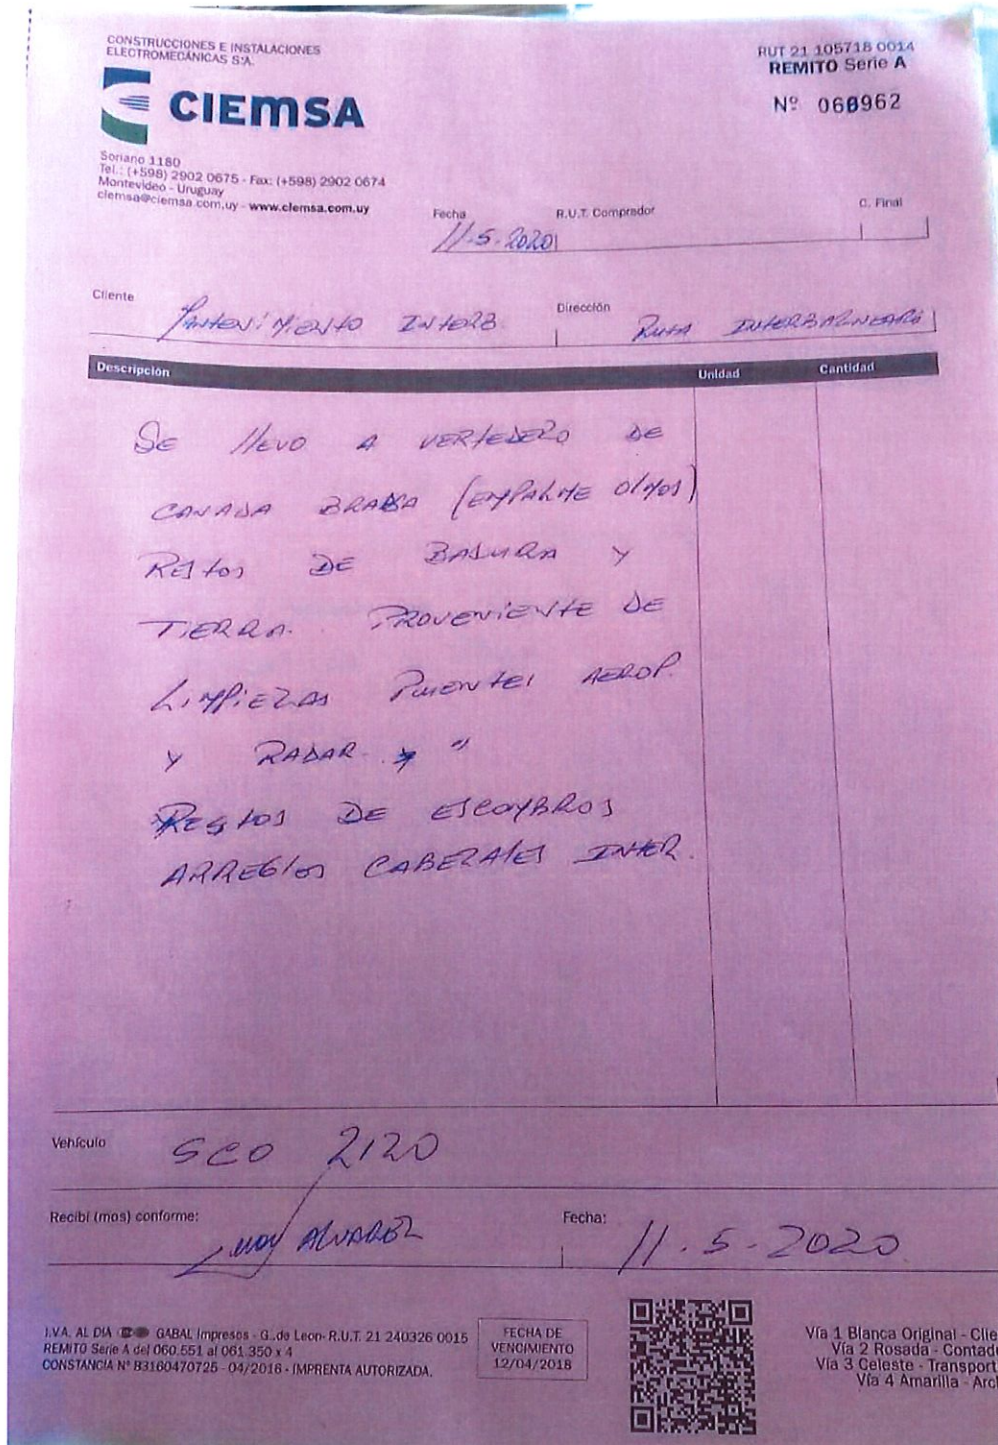 CONSTRUCCIONES E INSTALACIONES
ELECTROMECÁNICAS S.A.
CIEMSA
Soriano 1180
Tel.: (+598) 2902 0675 - Fax: (+598) 2902 0674
Montevideo - Uruguay
ciemsa@ciemsa.com.uy - www.ciemsa.com.uy
RUT 21 105718 0014
REMITO Serie A
Nº 060962
Fecha R.U.T. Comprador C. Final
11-5-2020
Cliente Mantenimiento INTERB Dirección RUTA INTERBALNEARI
Descripción Unidad Cantidad
SE llevo A VERTEDERO DE
CANADA (EMPALME OLMOS)
RESTOS DE BASURA Y
TIERRA. PROVENIENTE DE
LIMPIEZAS PUENTES AEROP.
Y RADAR. "
RESTOS DE ESCOMBROS
ARREGLOS CABEZALES INTER.
Vehículo SCO 2120
Recibí (mos) conforme: ALVAREZ Fecha: 11.5-2020
I.V.A. AL DIA GABAL Impresos - G. de Leon- R.U.T. 21 240326 0015
REMITO Serie A del 060.551 al 061.350 x 4
CONSTANCIA Nº 83160470725 - 04/2016 - IMPRENTA AUTORIZADA.
FECHA DE
VENCIMIENTO
12/04/2018
Vía 1 Blanca Original - Clie
Vía 2 Rosada - Contad
Vía 3 Celeste - Transport
Vía 4 Amarilla - Arc